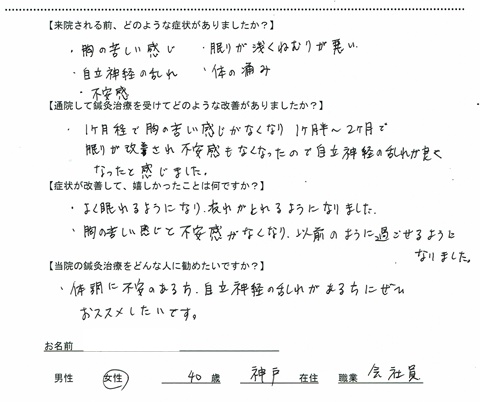 【来院される前、どのような症状がありましたか?】
・胸の苦しい感じ ・眠りが浅くねむりが悪い.
・自立神経の乱れ ・体の痛み
・不安感
【通院して鍼灸治療を受けてどのような改善がありましたか?】
・1ヶ月経て胸の苦しい感じがなくなり 1ヶ月半〜2ヶ月で
眠りが改善され 不安感もなくなったので自立神経の乱れが良く
なったと感じました.
【症状が改善して、嬉しかったことは何ですか?】
・よく眠れるようになり.疲れがとれるようになりました.
・胸の苦しい感じと不安感がなくなり.以前のように過ごせるように
なりました。
【当院の鍼灸治療をどんな人に勧めたいですか?】
・体調に不安のある方.自立神経の乱れがある方にぜひ
おススメしたいです。
お名前
男性 女性 40 歳 神戸 在住 職業 会社員